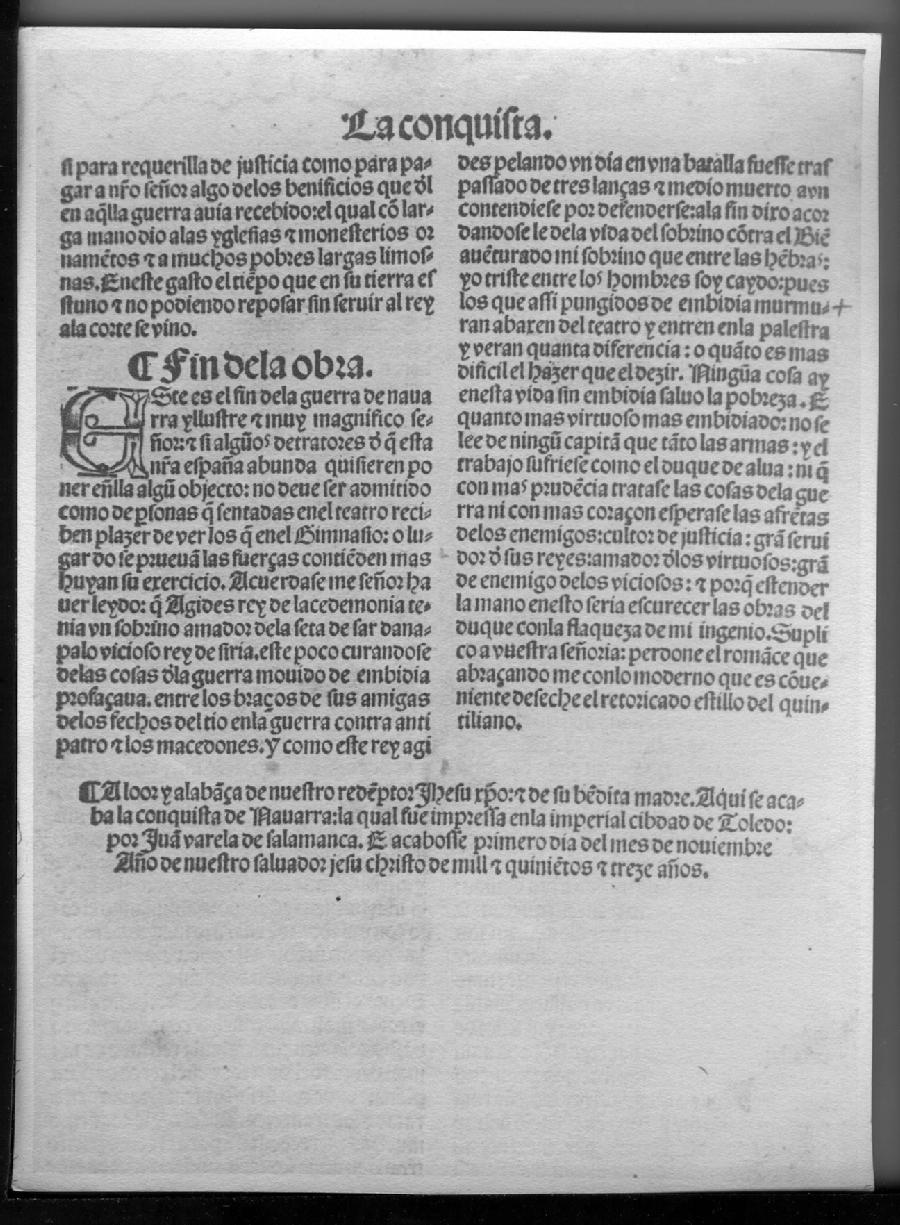 La conquista.
si para requerilla de justicia como para pa-
gar a nr̃o señor algo delos benificios que d̃l
en aq̃lla guerra auia recebido: el qual cõ lar-
ga mano dio alas yglesias ⁊ monesterios or
namẽtos ⁊ a muchos pobres largas limos-
nas. Eneste gasto el tiẽpo que en su tierra es
stuno ⁊ no podiendo reposar sin seruir al rey
ala corte se vino.
¶ Fin dela obra.
ESte es el fin dela guerra de naua
rra yllustre ⁊ muy magnifico se-
ñor: ⁊ si algũos detratores d̃ q̃ esta
nr̃a españa abunda quisieren po
ner eñlla algũ objecto: no deue ser admitido
como de p̱sonas q̃ sentadas enel teatro reci-
ben plazer de ver los q̃ enel Gimnasio: o lu-
gar do se prueuã las fuerças contiẽden mas
huyan su exercicio. Acuerdase me señor ha
uer leydo: q̃ Agides rey de lacedemonia te-
nia vn sobrino amador dela seta de sar dana-
palo vicioso rey de siria. este poco curandose
delas cosas d̃la guerra mouido de embidia
profaçaua. entre los braços de sus amigas
delos fechos del tio enla guerra contra anti
patro ⁊ los macedones. y como este rey agi
des pelando vn dia en vna batalla fuesse tras
passado de tres lanças ⁊ medio muerto avn
contendiese por defenderse: ala fin dixo acor
dandose le dela vida del sobrino cõtra el Biẽ
auẽturado mi sobrino que entre las hẽbras:
yo triste entre los hombres soy caydo: pues
los que assi pungidos de embidia murmu- +
ran abaxen del teatro y entren enla palestra
y veran quanta diferencia: o quãto es mas
dificil el hazer que el dezir. Ningũa cosa ay
enesta vida sin embidia saluo la pobreza. E
quanto mas virtuoso mas embidiado: no se
lee de ningũ capitã que tãto las armas: y el
trabajo sufriese como el duque de alua: ni q̃
con mas prudẽcia tratase las cosas dela gue
rra ni con mas coraçon esperase las afrẽtas
delos enemigos: cultor de justicia: grã serui
dor d̃ sus reyes: amador d̃los virtuosos: grã
de enemigo delos viciosos: ⁊ porq̃ estender
la mano enesto seria escurecer las obras del
duque conla flaqueza de mi ingenio. Supli
co a vuestra señoria: perdone el romãce que
abraçando me conlo moderno que es cõue-
niente deseche el retoricado estillo del quin-
tiliano.
¶ A loor y alabãça de nuestro redẽptor Jhesu xp̃o: ⁊ de su bẽdita madre. Aqui se aca-
ba la conquista de Nauarra: la qual fue impressa enla imperial cibdad de Toledo:
por Juã varela de salamanca. E acabosse primero dia del mes de nouiembre
Año de nuestro saluador jesu christo de mill ⁊ quiniẽtos ⁊ treze años.